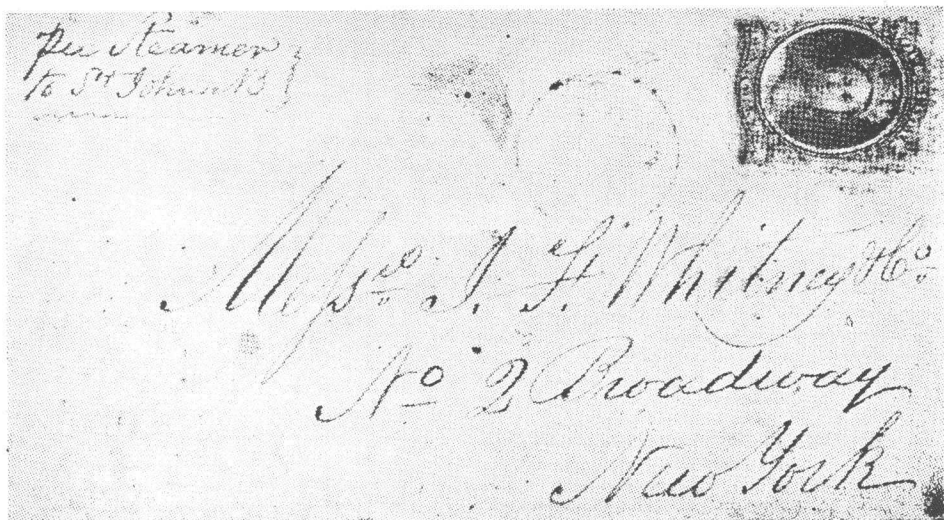 per Steamer
to St John NB
Messrs. J. F. Whitney & Co.
No 2 Broadway
New York